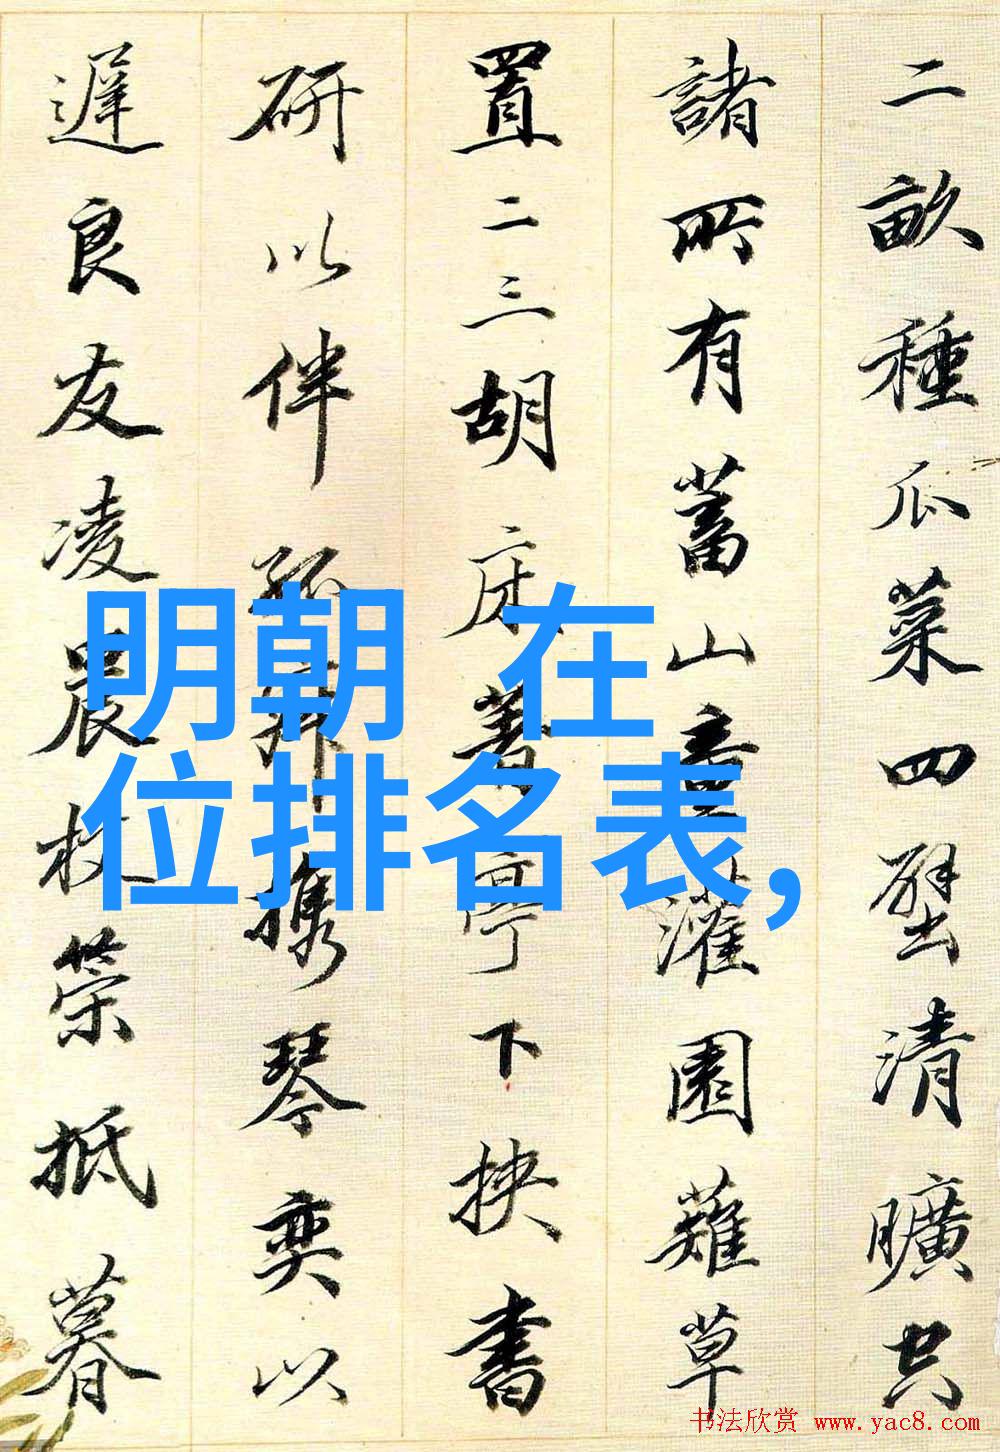 二畝種瓜菜四壁清曠空
諸所有蓄山童灌園薙草
置二三胡床著亭下挾書
研以伴孤攜琴奕以
遲良友凌晨杖策抵暮
明朝 在
位排名表,
书法欣赏 www.yac8.com